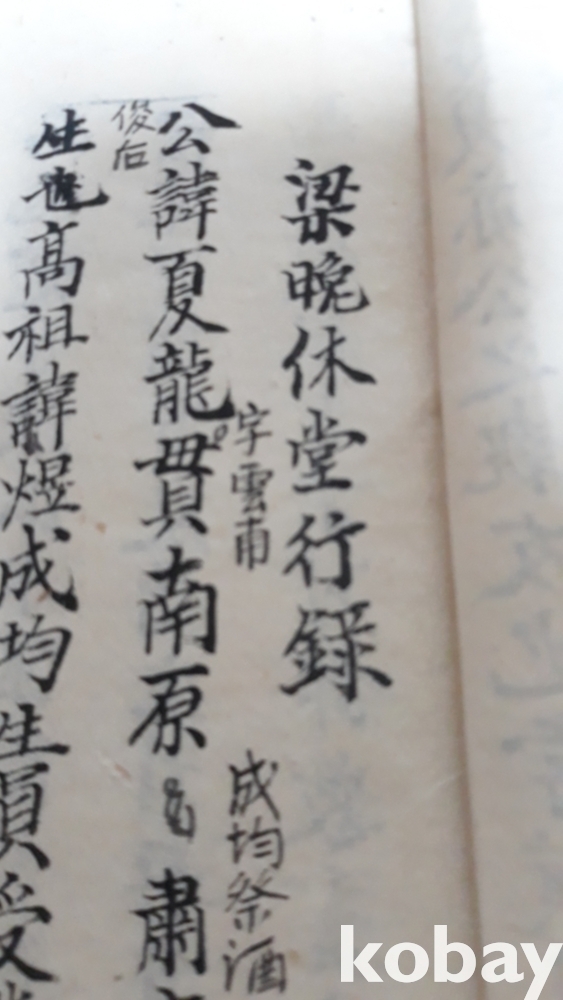 梁晩休堂行錄
公諱夏龍貫南原
字雲甫
成均祭酒
肅
俊后
生也高祖諱煜成均生員受
kobay